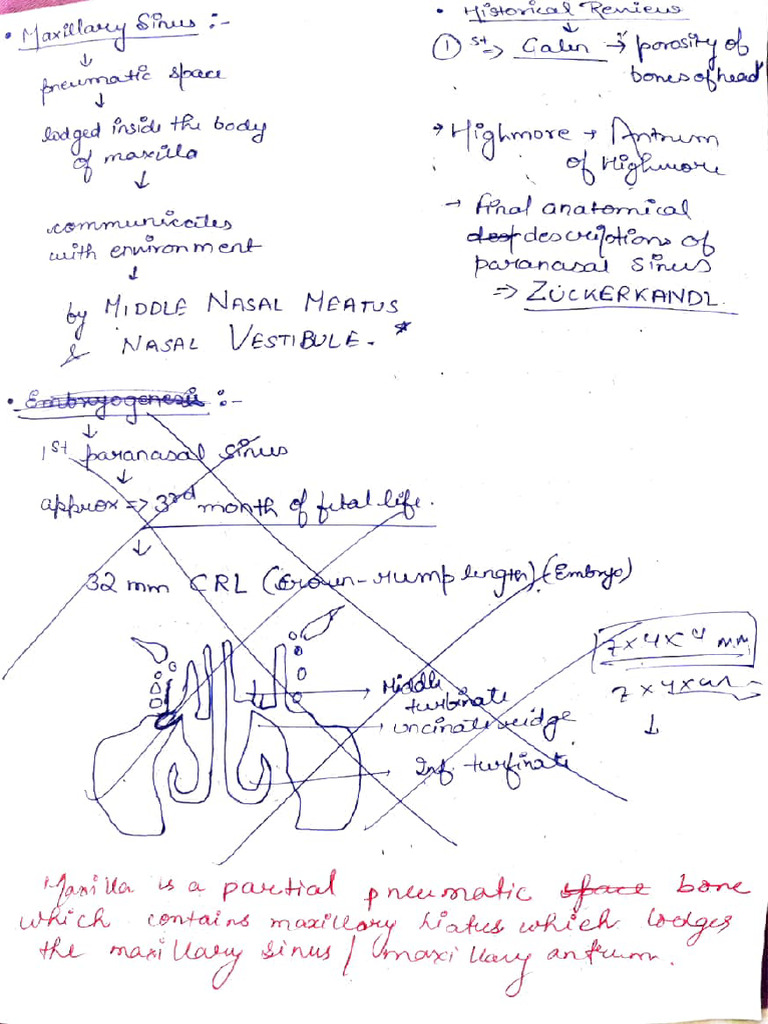 • Maxillary Sinus :-
↓
pneumatic space
↓
lodged inside the body
of maxilla
↓
communicates
with environment
↓
by MIDDLE NASAL MEATUS
& NASAL VESTIBULE. *
• Historical Review
↓
① st ⇒ Galen → porosity of
bones of head
→ Highmore → Antrum
of Highmore
→ final anatomical
descriptions of
paranasal sinus
⇒ ZUCKERKANDL.
• Embryogenesis :-
↓
1st paranasal sinus
↓
approx ⇒ 3rd month of fetal life.
↓
32 mm CRL (Crown-rump length) (Embryo)
Middle
turbinate
uncinate ridge
Inf. turbinate
7 x 4 x 4 mm
7 x 4 x
↓
Maxilla is a partial pneumatic space bone
which contains maxillary hiatus which lodges
the maxillary sinus / maxillary antrum.